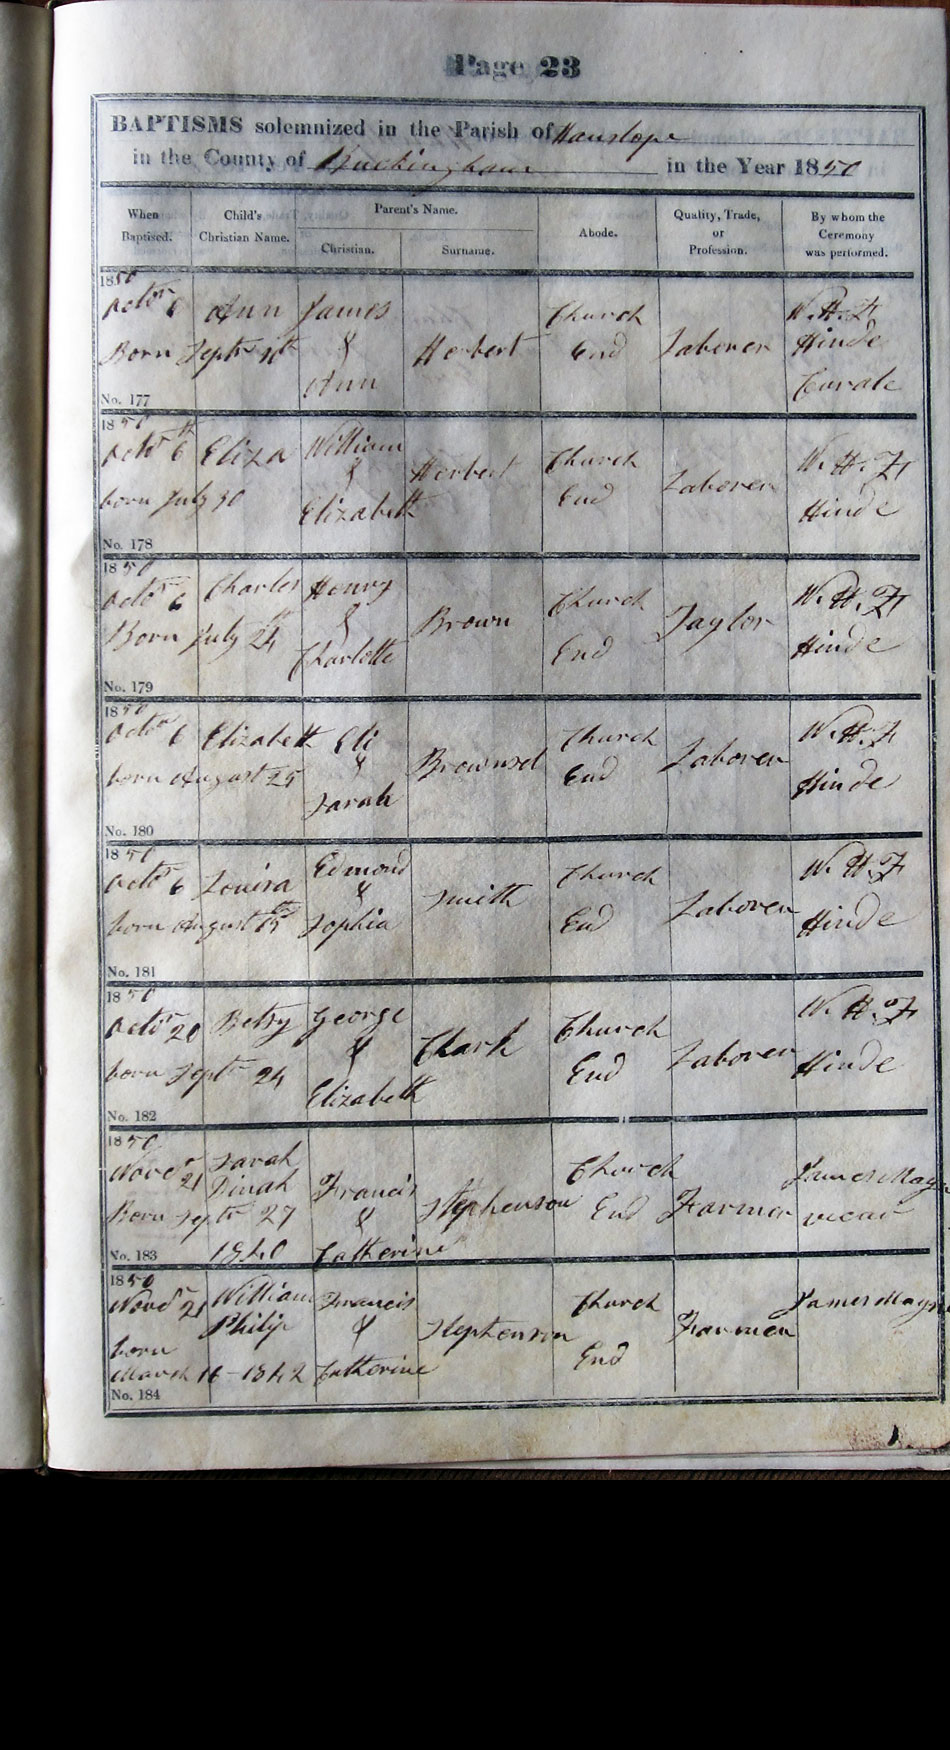 Page 23
BAPTISMS solemnized in the Parish of Hanslope
in the County of Buckingham in the Year 1850
When Baptised. Child's Christian Name. Parent's Name. Christian. Surname. Abode. Quality, Trade, or Profession. By whom the Ceremony was performed.
1850
Octr 6 Ann James Church W. H. F
Born Septr & Herbert End Laborer Hinde
Ann Curate
No. 177
1850
Octr 6th Eliza William Church W. H. F
born July 30 & Herbert End Laborer Hinde
Elizabeth
No. 178
1850
Octr 6 Charles Henry Church W. H. F
Born July 24th & Brown End Taylor Hinde
Charlotte
No. 179
1850
Octr 6 Elizabeth Eli Church W. H. F
born August 25 & Brownsel End Laborer Hinde
Sarah
No. 180
1850
Octr 6 Louisa Edmond Church W. H. F
born August 15th & Smith End Laborer Hinde
Sophia
No. 181
1850
Octr 20 Betsy George Church W. H. F
born Septr 24 & Clark End Laborer Hinde
Elizabeth
No. 182
1850
Novr 21 Sarah Dinah Francis Church James
Born Septr 27 & Stephenson End Farmer vicar
1840 Catherine
No. 183
1850
Novr 21 William Francis Church James
Philip & Stephenson End Farmer
born
March 16 - 1842 Catherine
No. 184